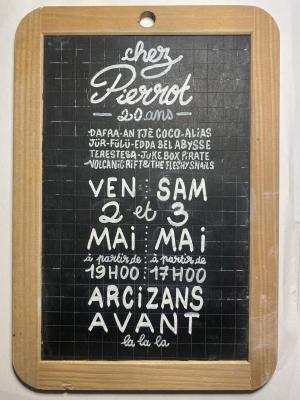 chez
Pierrot
- 20 ans -
DAFRA-AN TJÈ COCO-ALIAS
JÜR-FÜLÜ-EDDA BEL ABYSSE
TERESTESA-JUKE BOX PIRATE
-VOLCANIC RIFT & THE FLECHY SNAILS
VEN SAM
2 et 3
MAI MAI
à partir de : à partir de
19H00 17H00
ARCIZANS
AVANT
la la la